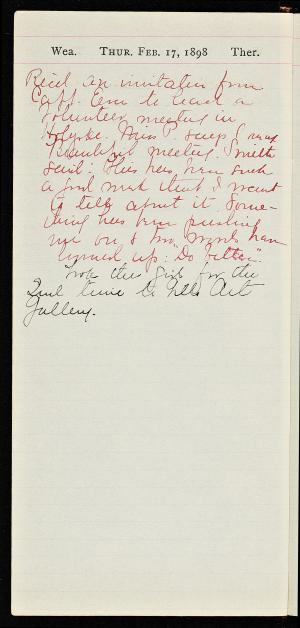 Wea. THUR. FEB. 17, 1898 Ther.
Recd. an invitation from
Capt. to lead a
volunteer meeting in
Holyoke. Miss P. says
Beautiful meeting. Smith
said: This has been such
a good week that I want
to talk about it. Some-
thing has been pushing
me on & two words have
up: Do better."
Took the girls for the
2nd time to Art
Gallery.